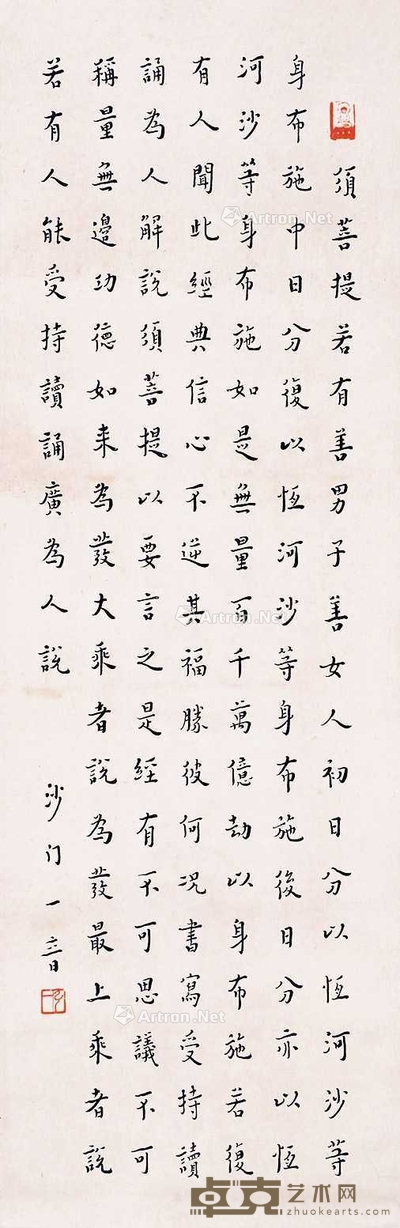 須菩提若有善男子善女人初日分以恆河沙等
身布施中日分復以恆河沙等身布施後日分亦以恆
河沙等身布施如是無量百千萬億劫以身布施若復
有人聞此經典信心不逆其福勝彼何況書寫受持讀
誦為人解說須菩提以要言之是經有不可思議不可
稱量無邊功德如来為發大乘者說為發最上乘者說
若有人能受持讀誦廣為人說
沙门一音
Artron.Net
Artron.Net
Artron.Net
Artron.Net
Artron.Net
卓克艺术网
www.zhuokearts.com